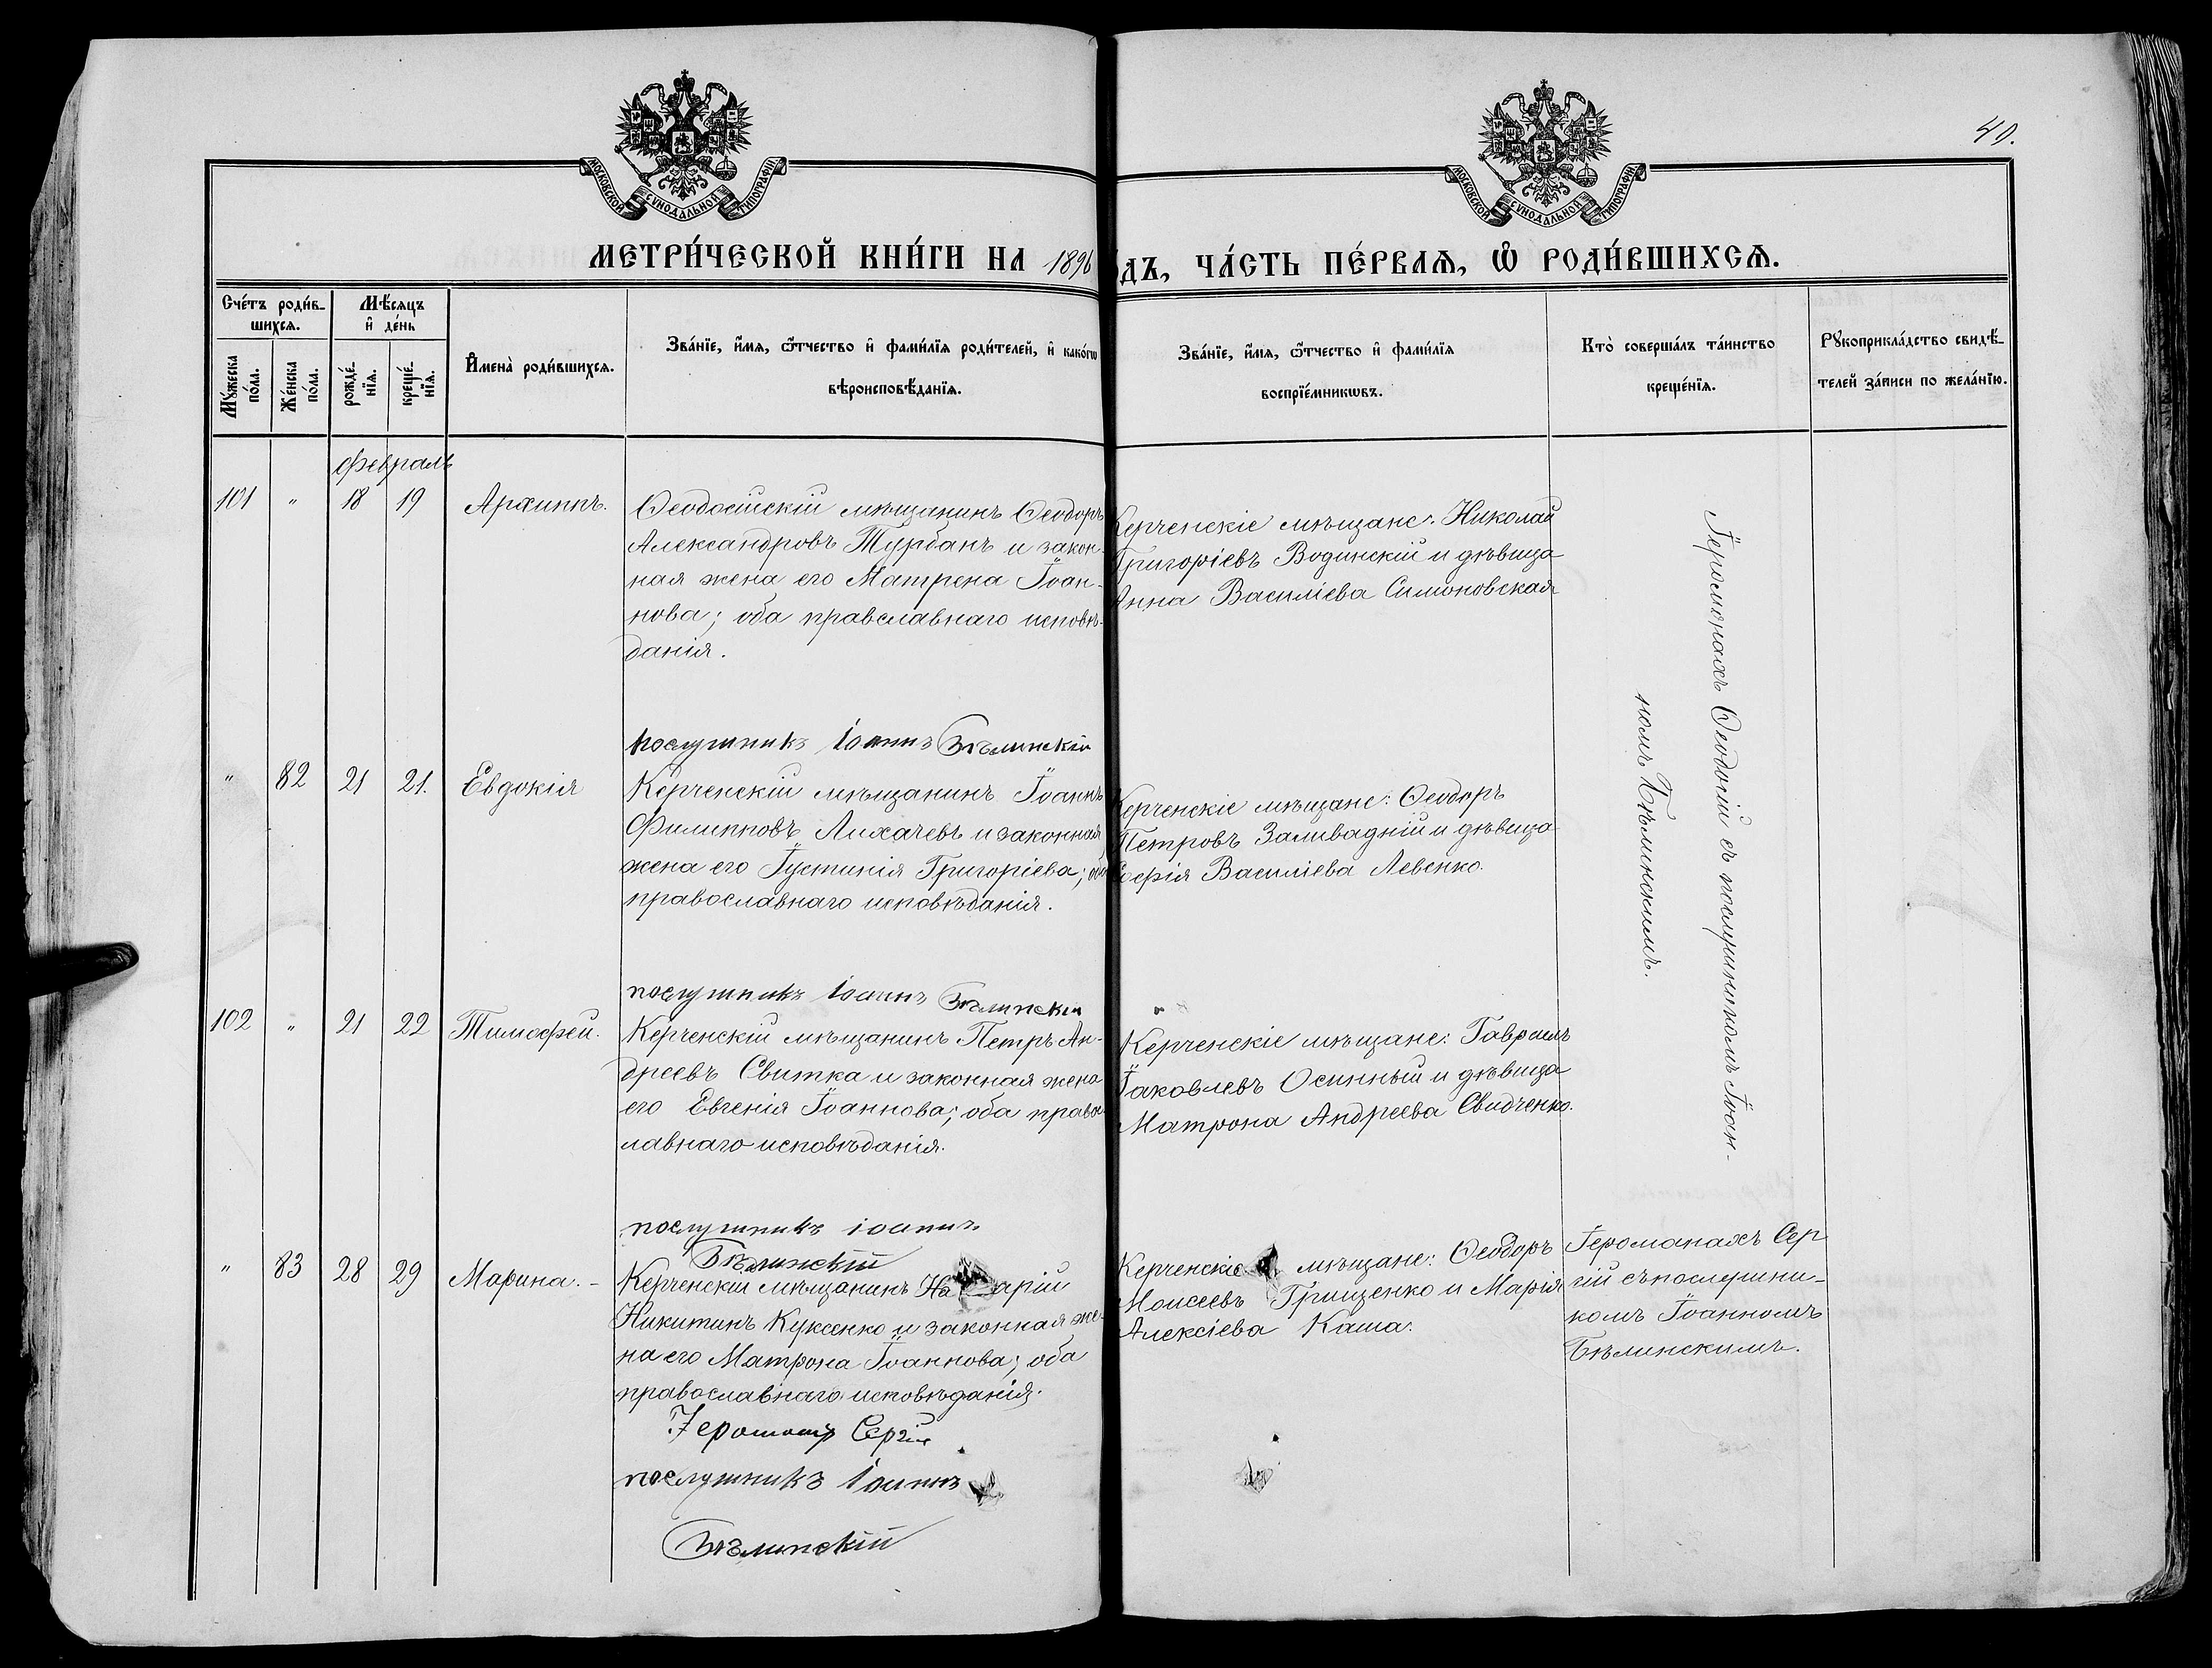 40.
МОСКОВСКОЙ СѴНОДАЛЬНОЙ ТИПОГРАФІИ
МОСКОВСКОЙ СѴНОДАЛЬНОЙ ТИПОГРАФІИ
МЕТРИ́ЧЕСКОЙ КНИ́ГИ НА 1896
ДЪ, ЧА́СТЬ ПЕ́РВАѦ, Ѡ҆ РОДИ́ВШИХСѦ.
Сче́тъ роди́в-
шихсѧ.
Мꙋ́жеска
по́ла.
Же́нска
по́ла.
Мѣ́сѧцъ
и҆ де́нь
рожде́-
нїѧ.
креще́-
нїѧ.
И҆мена̀ роди́вшихсѧ.
Зва́нїе, и҆́мѧ, ѻ҆́тчество и҆ фами́лїѧ роди́телей, и҆ како́гѡ
вѣроисповѣ́данїѧ.
Зва́нїе, и҆́мѧ, ѻ҆́тчество и҆ фами́лїѧ
воспрїе́мникѡвъ.
Кто̀ соверша́лъ та́инство
креще́нїѧ.
Рꙋкоприкла́дство свидѣ́-
телей за́писи по жела́нїю.
Февраль
101 " 18 19 Архиппъ.
Ѳеодосійскій мѣщанинъ Ѳеодоръ
Александровъ Турбанъ и закон-
ная жена его Матрена Іоан-
нова; оба правславнаго исповѣ-
данія.
послушникъ Іоаннъ Бѣлинскій
Керченскіе мѣщане: Николай
Григоріевъ Водинскій и дѣвица
Анна Василіева Симоновская
Іеромонахъ Ѳеодосій съ послушникомъ Іоан-
номъ Бѣлинскимъ.
" 82 21 21. Евдокія
Керченскій мѣщанинъ Іоаннъ
Филипповъ Лихачевъ и законная
жена его Іустинія Григоріева; оба
православнаго исповѣданія.
послушникъ Іоаннъ Бѣлинскій
Керченскіе мѣщане: Ѳеодоръ
Петровъ Заливадній и дѣвица
Софія Василіева Левенко.
102 " 21 22 Тимофей.
Керченскій мѣщанинъ Петръ Ан-
дреевъ Свитка и законная жена
его Евгенія Іоаннова; оба право
лавнаго исповѣданія.
послушникъ іоаннъ
Бѣлинскій
Керченскіе мѣщане: Гавріилъ
Іаковлевъ Осинный и дѣвица
Матрона Андреева Свидченко.
" 83 28 29 Марина. -
Керченскій мѣщанинъ На арій
Никитинъ Куксенко и законная же-
на его Матрона Іоаннова; оба
православнаго исповѣданія.
Іеромонахъ Сергій
послушникъ Іоаннъ
Бѣлинскій
Керченскіе мѣщане: Ѳеодоръ
Моисеевъ Грищенко и Марія
Алексіева Каша.
Іеромонахъ Сер
гій съ послушни-
комъ Іоанномъ
Бѣлинскимъ.